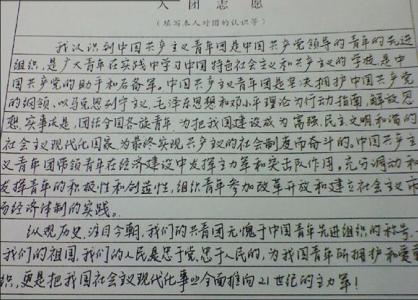 入团志愿
（填写本人对团的认识等）
我认识到中国共产主义青年团是中国共产党领导的青年的先进
组织，是广大青年在实践中学习中国特色社会主义和共产主义的学校，是中
国共产党的助手和后备军。中国共产主义青年团坚决拥护中国共产党
的纲领，以马克思列宁主义、毛泽东思想和邓小平理论为行动指南，解放思
想，实事求是，团结全国各族青年，为把我国建设成为富强、民主、文明和谐的
社会主义现代化国家，为最终实现共产主义的社会制度而奋斗的。中国共产主
义青年团带领青年在经济建设中发挥主力军和突击队作用，充分调动和
发挥青年的积极性和创造性，组织青年参加改革开放和建立社会主义市
场经济体制的实践。
纵观历史，注目今朝，我们的共青团无愧于中国青年先进组织的称号，
我们的祖国，我们的人民是忠于党，忠于人民的，为我国青年所拥护和爱戴
织，更是把我国社会主义现代化事业全面推向21世纪的主力军！